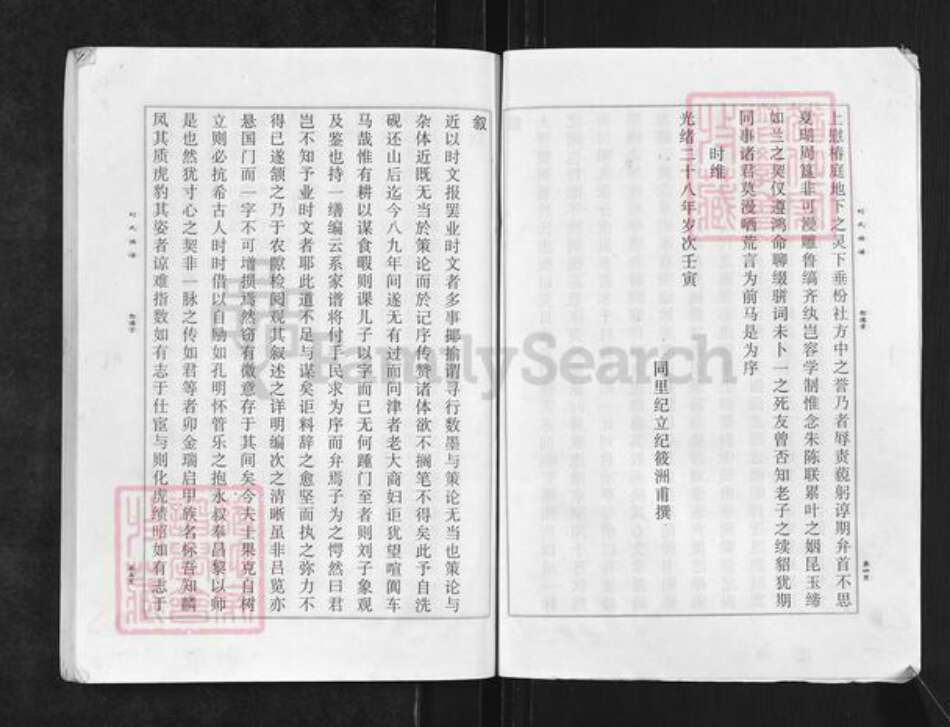 上慰椿庭地下之灵下垂枌社方中之誉乃者辱责藐躬谆期弁首不思
夏瑚周簋非可漫雕鲁缟齐纨岂容学制惟念朱陈联累叶之姻昆玉缔
如兰之契仅遵鸿命聊缀骈词未卜一之死友曾否知老子之续貂犹期
同事诸君莫漫哂荒言为前马是为序
时维
光绪二十八年岁次壬寅
同里纪立纪筱洲甫撰
叙
近以时文报罢业时文者多事揶揄谓寻行数墨与策论无当也策论与
杂体近既无当於策论而於记序传赞诸体欲不搁笔不得矣此予自洗
砚还山后迄今八九年间遂无有过而问津者老大商妇讵犹望喧阗车
马哉惟有耕以谋食暇则课儿子以字而已无何踵门至者则刘子象观
及鉴也持一缮编云系家谱将付手民求为序而弁焉子为之愕然曰君
岂不知予业时文者耶此道不足与谋矣讵料辞之愈坚而执之弥力不
得已遂颔之乃于农隙检阅观其叙述之详明编次之清晰虽非吕览亦
悬国门而一字不可增损焉然窃有微意存于其间矣今夫士果克自树
立则必抗希古人时时借以自励如孔明怀管乐之抱永叔奉昌黎以师
是也然犹寸心之契非一脉之传如君等者卯金瑞启甲族名标吾知麟
凤其质虎豹其姿者谅难指数如有志于仕宦与则化虎绩昭如有志于
FamilySearch